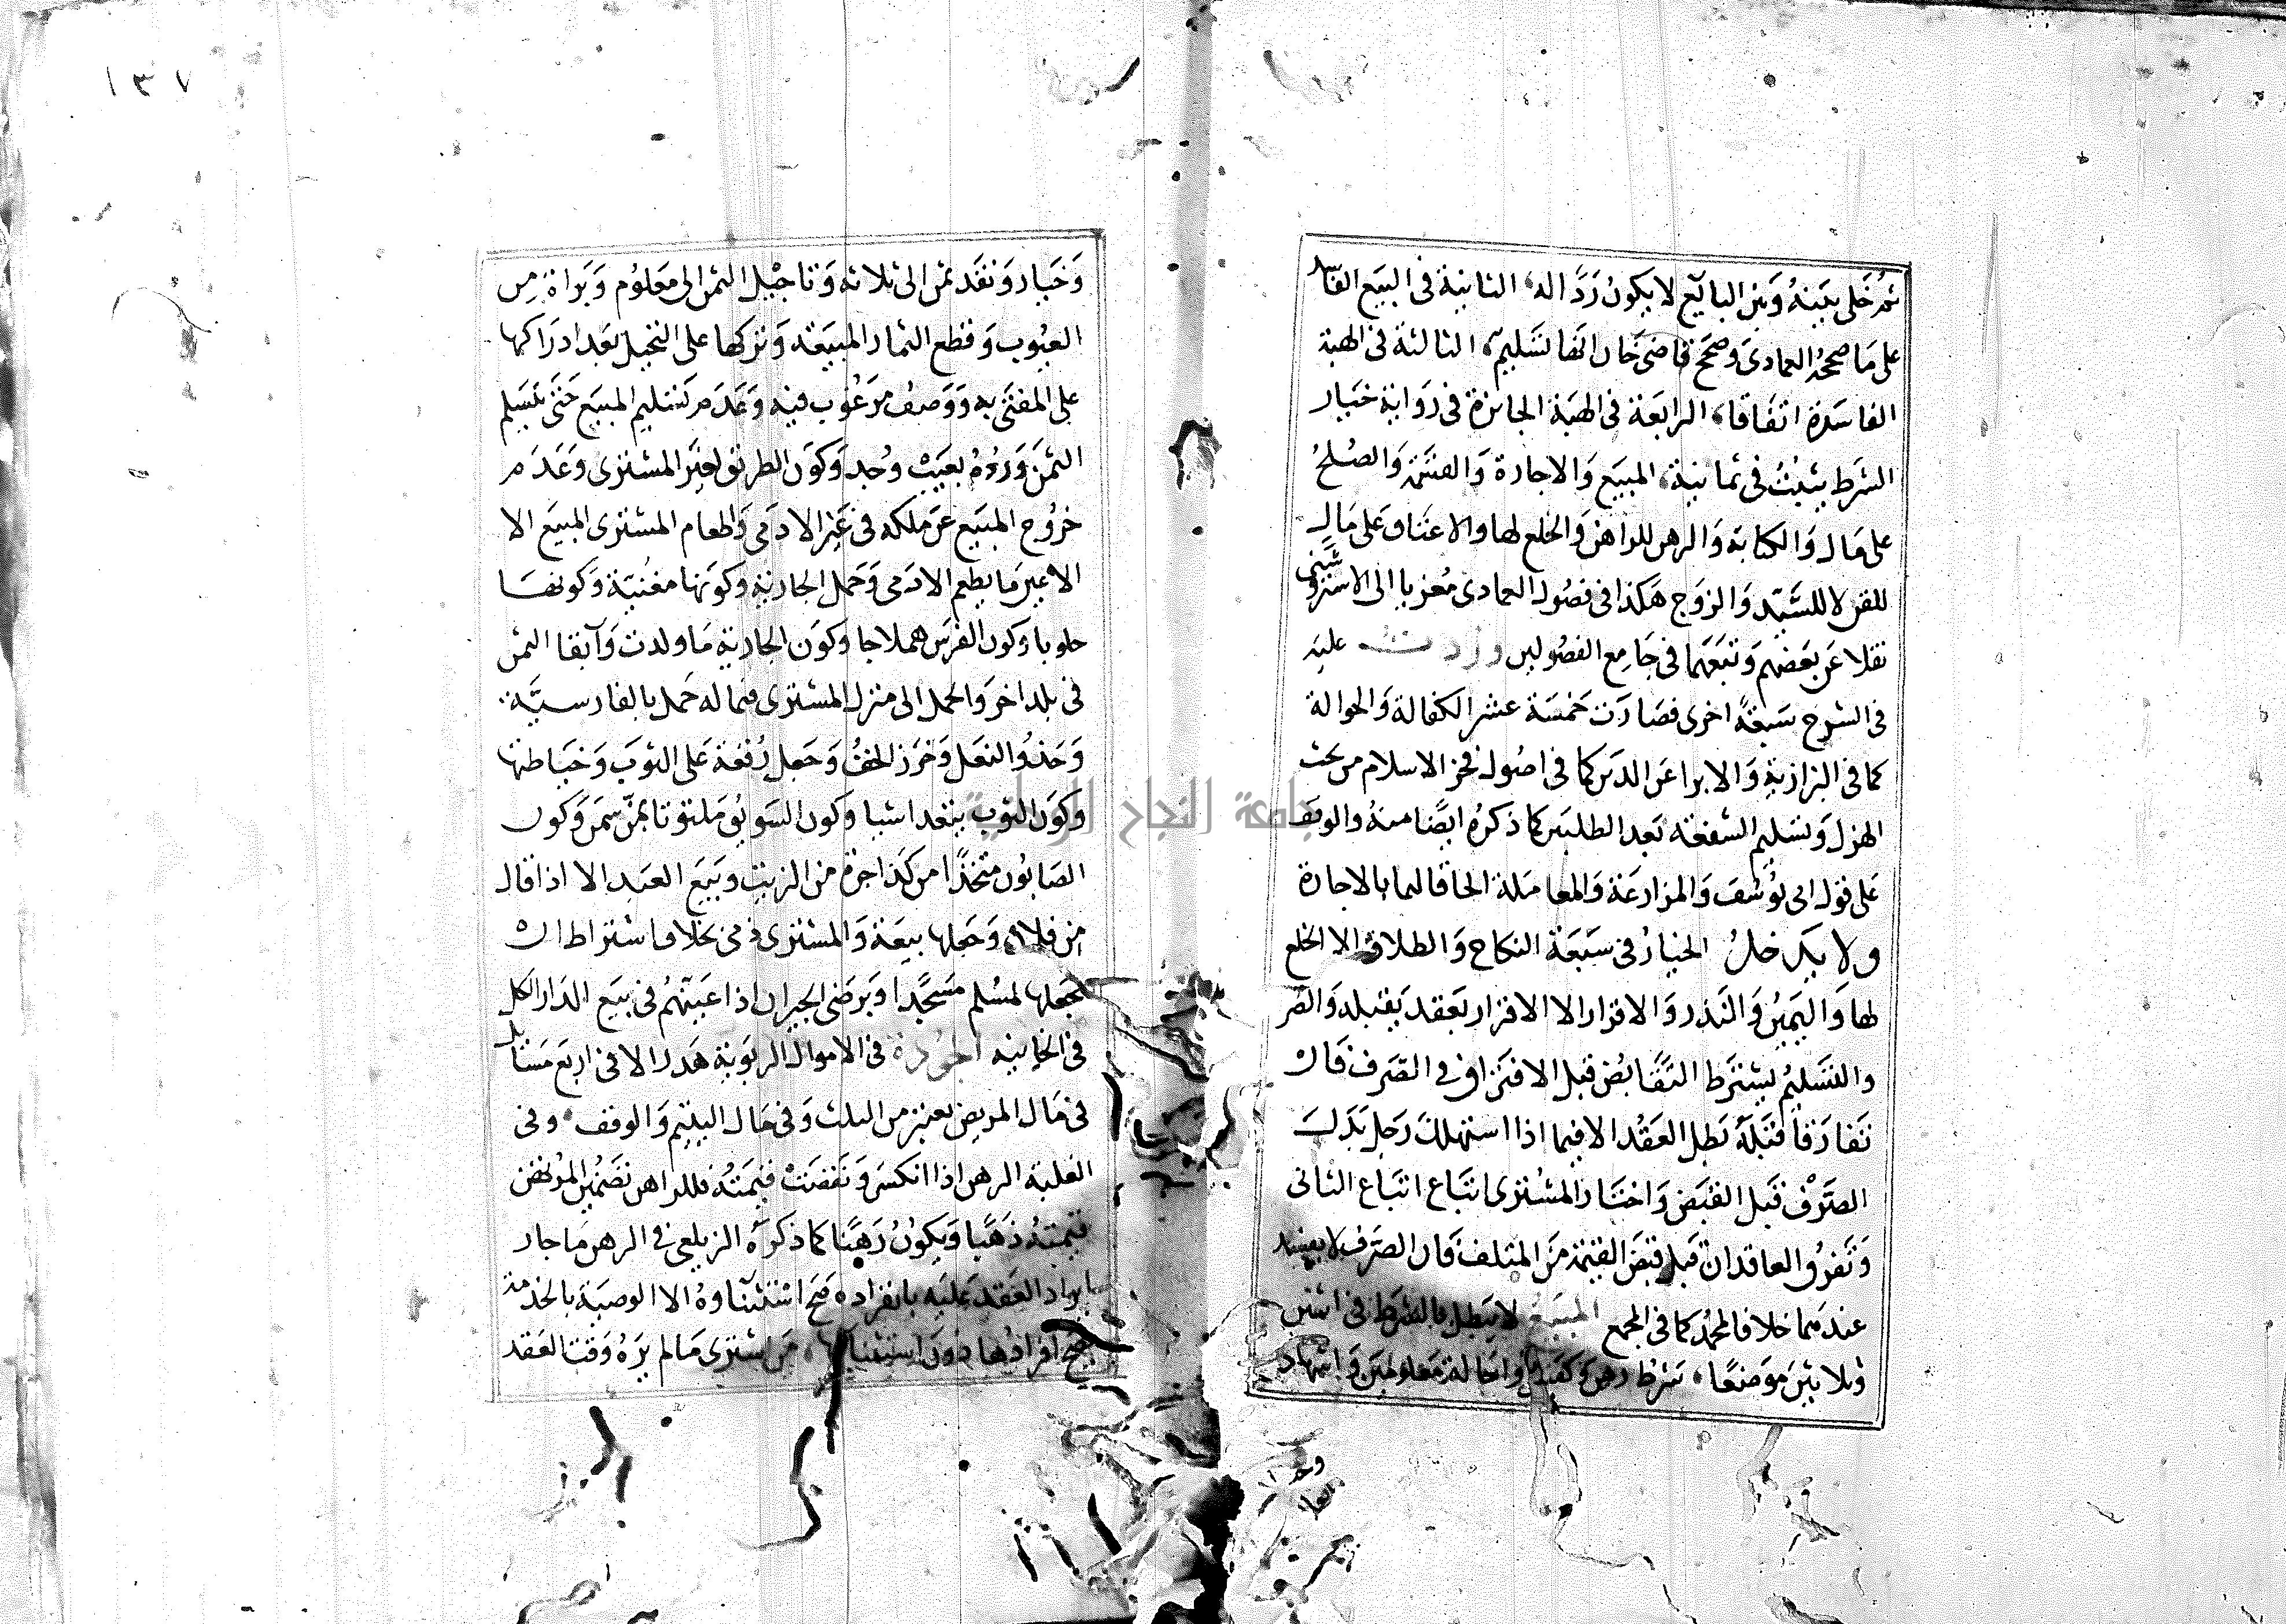 ثم خلى بينه وبين البائع لا يكون ردا له الثانية في البيع الفاسد
على ما صححه العمادى وصحح قاضى خان انها تسليم الثالثة في الهبة
الفاسدة اتفاقا الرابعة في الهبة الجائزة في رواية خيار
الشرط يثبت في ثمانية المبيع والاجارة والقسمة والصلح
على مال والكتابة والرهن للراهن والخلع لها والاعتاق على مال
للقن لا للسيد والزوج هكذا في فصول العمادى معزيا الى الاستروشنى
نقلا عن بعضهم وتبعهما في جامع الفصولين وزدت عليه
في الشرح سبعة اخرى فصارت خمسة عشر الكفالة والحوالة
كما في البزازية والابرا عن الدين كما في اصول فخر الاسلام من بحث
الهزل وتسليم الشفعة بعد الطلبين كما ذكره ايضا منه والوقف
على قول ابى يوسف والمزارعة والمعاملة الحاقا لهما بالاجارة
ولا يدخل الخيار في سبعة النكاح والطلاق الا الخلع
لها واليمين والنذر والاقرار الا الاقرار بعقد يقبله والصرف
والتسليم يشترط التقابض قبل الافتراق في الصرف فان
تفارقا قبله بطل العقد الا فيما اذا استهلك رجل بدل
الصرف قبل القبض واختار المشترى اتباع اتباع الثانى
وتفرق العاقدان قبل قبض القيمة من المتلف فان الصرف لا يفسد
عندهما خلافا لمحمد كما في المجمع المبيع لا يبطل بالشرط في اثنين
وثلاثين موضعا شرط رهن وكفيل واحالة معلومين واشهاد
وخيار ونقد ثمن الى ثلاثة وتاجيل الثمن الى معلوم وبراة من
العيوب وقطع الثمار المبيعة وتركها على النخيل بعد ادراكها
على المفتى به ووصف مرغوب فيه وعدم تسليم المبيع حتى يتسلم
الثمن ورده بعيب وجد وكون الطريق لغير المشترى وعدم
خروج المبيع عن ملكه في غير الادمى واطعام المشترى المبيع الا
الا عير ما يطعم الادمى وحمل الجارية وكونها مغنية وكونها
حلوبا وكون الفرس هملاجا وكون الجارية ما ولدت وايفا الثمن
في بلد اخر والحمل الى منزل المشترى فيما له حمل بالفارسية
وحذو النعل وخرز الخف وجعل رقعة على الثوب وخياطتها
وكون الثوب وكون السويق ملتوتا بمن سمن وكون
الصابون متخذا من كذا جرة من الزيت وبيع العبد الا اذا قال
من فلان وجعلها بيعة والمشترى ذمى بخلاف اشتراط ان
يجعلها لمسلم مسجدا وبرضى الجيران اذا عينهم في بيع الدار الكل
في الخانية الجودة في الاموال الربوية هدر الا في اربع مسائل
في مال المريض تعتبر من الثلث وفي مال اليتيم والوقف وفي
القلبة الرهن اذا انكسر ونقصت قيمته فللراهن تضمين المرتهن
قيمته ذهبا ويكون رهنا كما ذكره الزيلعى في الرهن ما جاز
ايراد العقد عليه بانفراده صح استثناوه الا الوصية بالخدمة
يصح افرادها دون استثنائها من اشترى ما لم يره وقت العقد
١٣٧
جامعة النجاح الوطنية